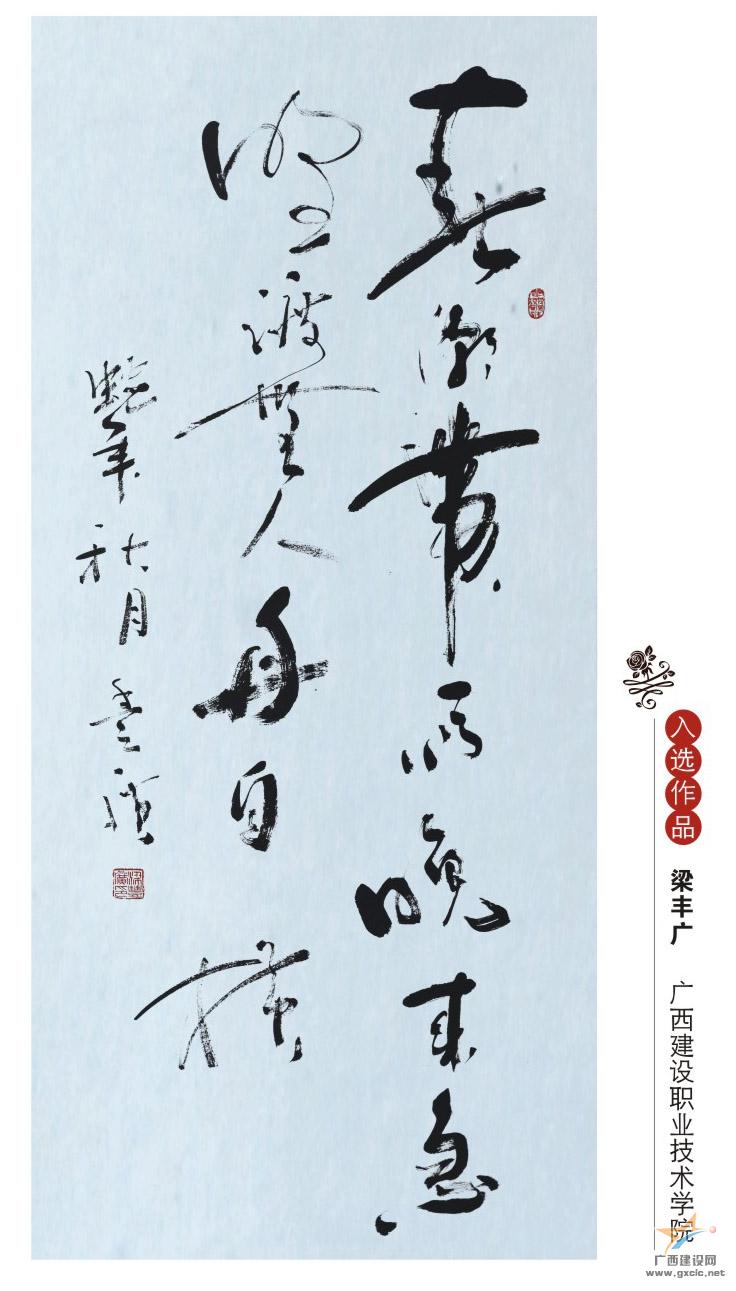 春潮帶雨晚来急
野渡無人舟自橫
蛇年秋月 豐廣
梁豐廣印
入选作品 梁丰广 广西建设职业技术学院
广西建设网
www.gxcic.net